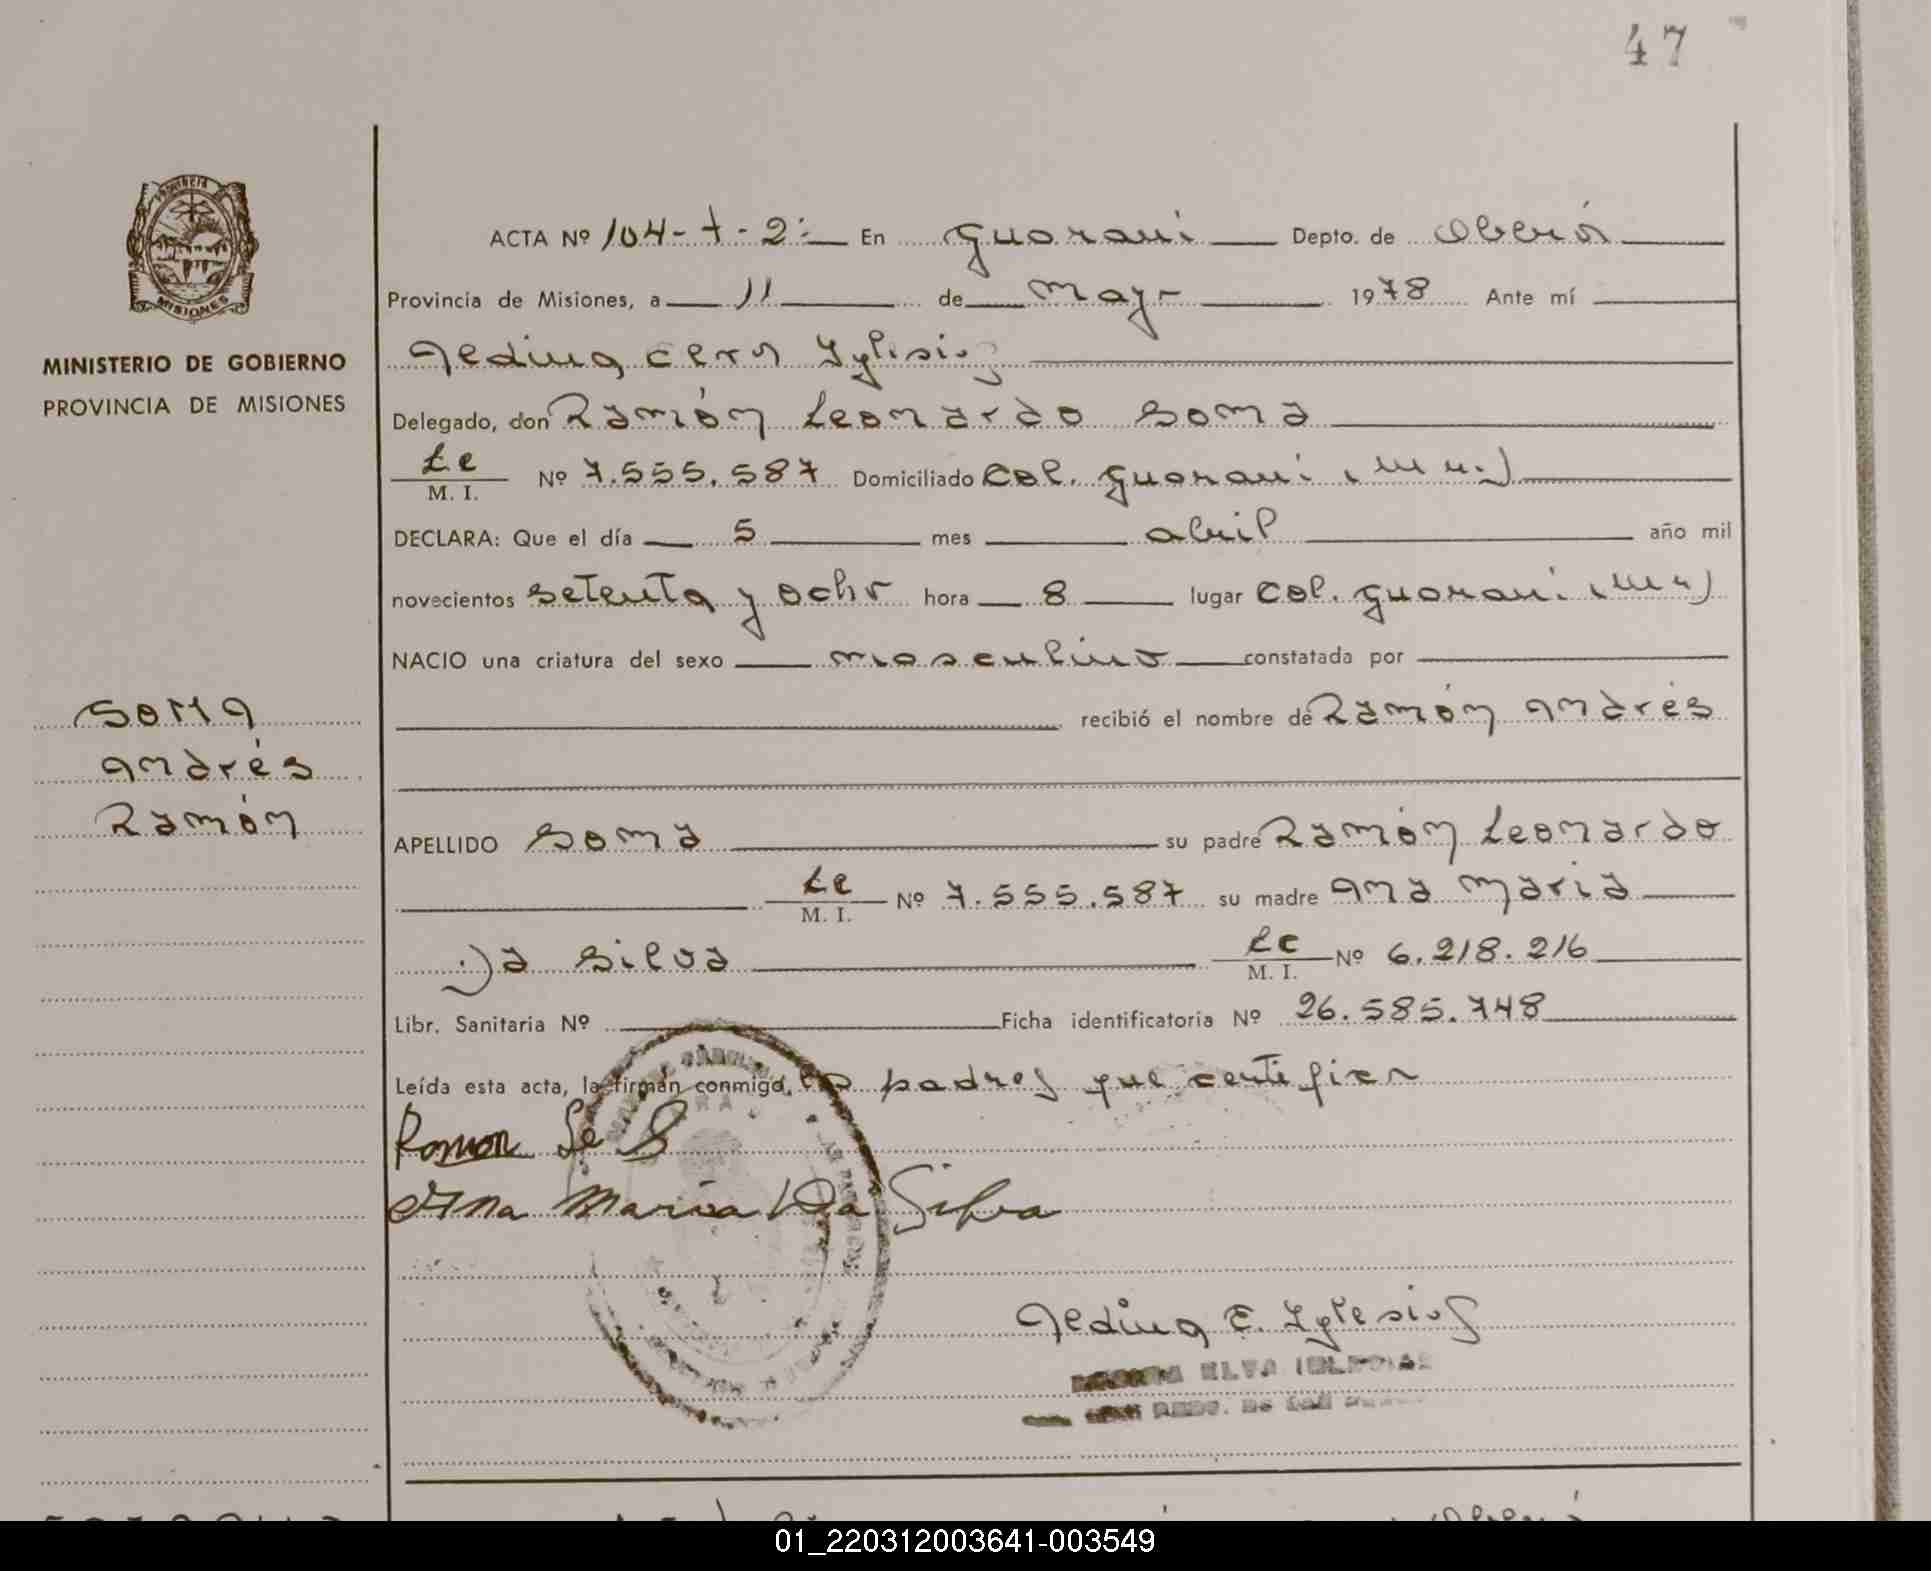 47
ACTA Nº 104-t-2: En Guarani Depto. de Oberá
Provincia de Misiones, a 11 de Mayo 1978 Ante mí
Iglesias
Delegado, don Ramón Leonardo Soma
LE M. I. Nº 7.555.587 Domiciliado Col. Guarani (Mnes)
DECLARA: Que el día 5 mes abril año mil
novecientos setenta y ocho hora 8 lugar Col. Guarani (Mnes)
NACIO una criatura del sexo masculino constatada por
recibió el nombre de Ramón Andrés
APELLIDO Soma su padre Ramón Leonardo
LE M. I. Nº 7.555.587 su madre Ana Maria
Da Silva LC M. I. Nº 6.218.216
Libr. Sanitaria Nº Ficha identificatoria Nº 26.585.748
Leída esta acta, la firman conmigo, los padres que certifican
Ramon Le S
Ana Maria Da Silva
E. Iglesias
ELVA IGLESIAS
MINISTERIO DE GOBIERNO
PROVINCIA DE MISIONES
MISIONES
Soma
Andrés
Ramón
01_220312003641-003549